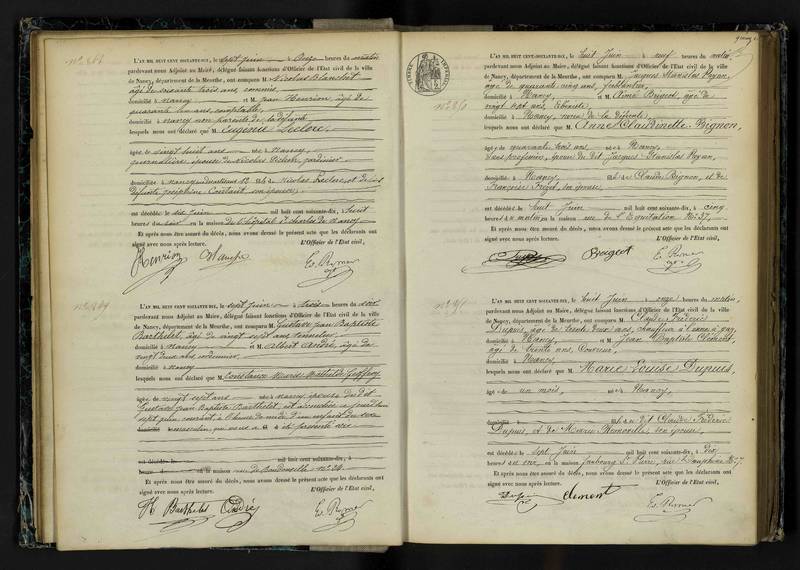 L'AN MIL HUIT CENT SOIXANTE-DIX, le sept juin à onze heures du matin
pardevant nous Adjoint au Maire, délégué faisant fonctions d'Officier de l'Etat civil de la ville
de Nancy, département de la Meurthe, ont comparu M. Nicolas Blanchot
âgé de soixante trois ans, commis,
domicilié à Nancy et M. Jean Henrion, âgé de
quarante ans, comptable,
domicilié à Nancy non parents de la défunte
lesquels nous ont déclaré que M. Eugénie Leclerc,
âgée de vingt huit ans née à Nancy,
journalière, épouse de Nicolas jardinier
domiciliée à Nancy fille de Nicolas Leclerc et de
défunte Joséphine Constant son épouse,
est décédée le six juin mil huit cent soixante-dix, à huit
heures du soir en la maison de l'hôpital St Charles de Nancy
Et après nous être assuré du décès, nous avons dressé le présent acte que les déclarants ont
signé avec nous après lecture. L'Officier de l'Etat civil,
Henrion
L'AN MIL HUIT CENT SOIXANTE-DIX, le sept juin à trois heures du soir
pardevant nous Adjoint au Maire, délégué faisant fonctions d'Officier de l'Etat civil de la ville
de Nancy, département de la Meurthe, ont comparu M. Gustave Jean Baptiste
Barthelet, âgé de vingt sept ans
domicilié à Nancy et M. Albert André, âgé de
vingt deux ans
domicilié à Nancy
lesquels nous ont déclaré que M. Constance Marie Mathilde Geoffroy
âgée de vingt sept ans née à Nancy, épouse du dit
Gustave Jean Baptiste Barthelet, est accouchée
sept juin courant à d'un enfant du sexe
masculin, qui nous a été présenté
est décédé le mil huit cent soixante-dix, à
heures en la maison rue de Boudonville No 24.
Et après nous être assuré du décès, nous avons dressé le présent acte que les déclarants ont
signé avec nous après lecture. L'Officier de l'Etat civil,
Barthelet André
L'AN MIL HUIT CENT SOIXANTE-DIX, le huit Juin à neuf heures du matin
pardevant nous Adjoint au Maire, délégué faisant fonctions d'Officier de l'Etat civil de la ville
de Nancy, département de la Meurthe, ont comparu M. Jacques Stanislas Poyan,
âgé de quarante cinq ans, ferblantier,
domicilié à Nancy, et M. Aimé Brigeot, âgé de
vingt sept ans, Ebéniste,
domicilié à Nancy, de la défunte,
lesquels nous ont déclaré que M. Anne Claudinette Bignon,
âgée de quarante trois ans, née à Nancy,
sans profession, épouse du dit Jacques Stanislas Poyan,
domiciliée à Nancy fille de Claude Bignon, et de
Françoise son épouse,
est décédée le huit Juin mil huit cent soixante-dix, à cinq
heures du matin en la maison rue de l'Equitation No 37,
Et après nous être assuré du décès, nous avons dressé le présent acte que les déclarants ont
signé avec nous après lecture. L'Officier de l'Etat civil,
Brigeot
L'AN MIL HUIT CENT SOIXANTE-DIX, le huit Juin à onze heures du matin,
pardevant nous Adjoint au Maire, délégué faisant fonctions d'Officier de l'Etat civil de la ville
de Nancy, département de la Meurthe, ont comparu M. Claude Frédéric
Dupuis, âgé de trente deux ans, chauffeur à l'usine à gaz,
domicilié à Nancy, et M. Jean Baptiste Clément,
âgé de trente ans, Couvreur,
domicilié à Nancy,
lesquels nous ont déclaré que Marie Louise Dupuis,
âgée de un mois, née à Nancy,
domiciliée à fille de dit Claude Frédéric
Dupuis, et de Marie son épouse,
est décédée le sept Juin mil huit cent soixante-dix, à dix
heures du soir, en la maison faubourg St Pierre, rue Dauphine No 7,
Et après nous être assuré du décès, nous avons dressé le présent acte que les déclarants ont
signé avec nous après lecture. L'Officier de l'Etat civil,
Clement